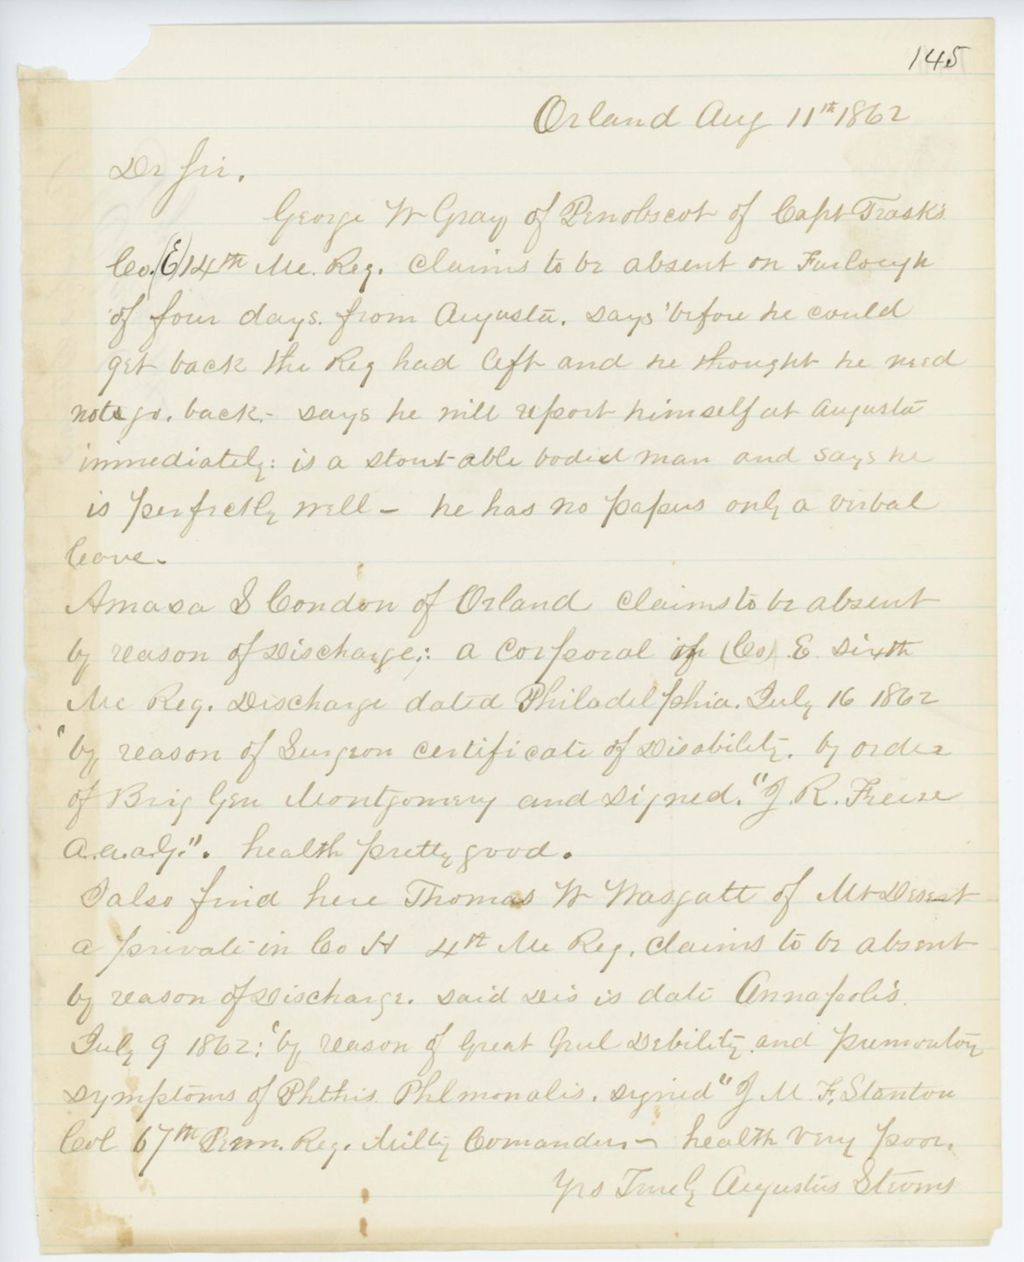 145
Orland Aug 11th 1862
Dr Sir.
George W Gray of Penobscot of Capt Trask's
Co. (E) 14th Me. Reg. claims to be absent on Furlough
of four days. from Augusta. says 'before he could
get back the Reg had left and he thought he need
not go. back - says he will report himself at Augusta
immediately: is a stout able bodied man and says he
is perfectly well - he has no papers only a verbal
leave.
Amasa S Condon of Orland claims to be absent
by reason of Discharge,: a Corporal in (Co) E Sixth
Me Reg. Discharge dated Philadelphia. July 16 1862
"by reason of Surgeon certificate of Disability. by order
of Brig Gen Montgomery and signed. "J. R. Freese
a.a.a.G.". health pretty good.
I also find here Thomas W Wasgatt of Mt Desert
a private in Co H 4th Me Reg. claims to be absent
by reason of Discharge. said Dis is date Annapolis.
July 9 1862: "by reason of Great Genl Debility and premontory
symptoms of Phthis Phlmonalis. signed" J M F. Stanton
Col 67th Penn. Reg. Milty Comander - health very poor.
Yrs Truely Augustus Stevens